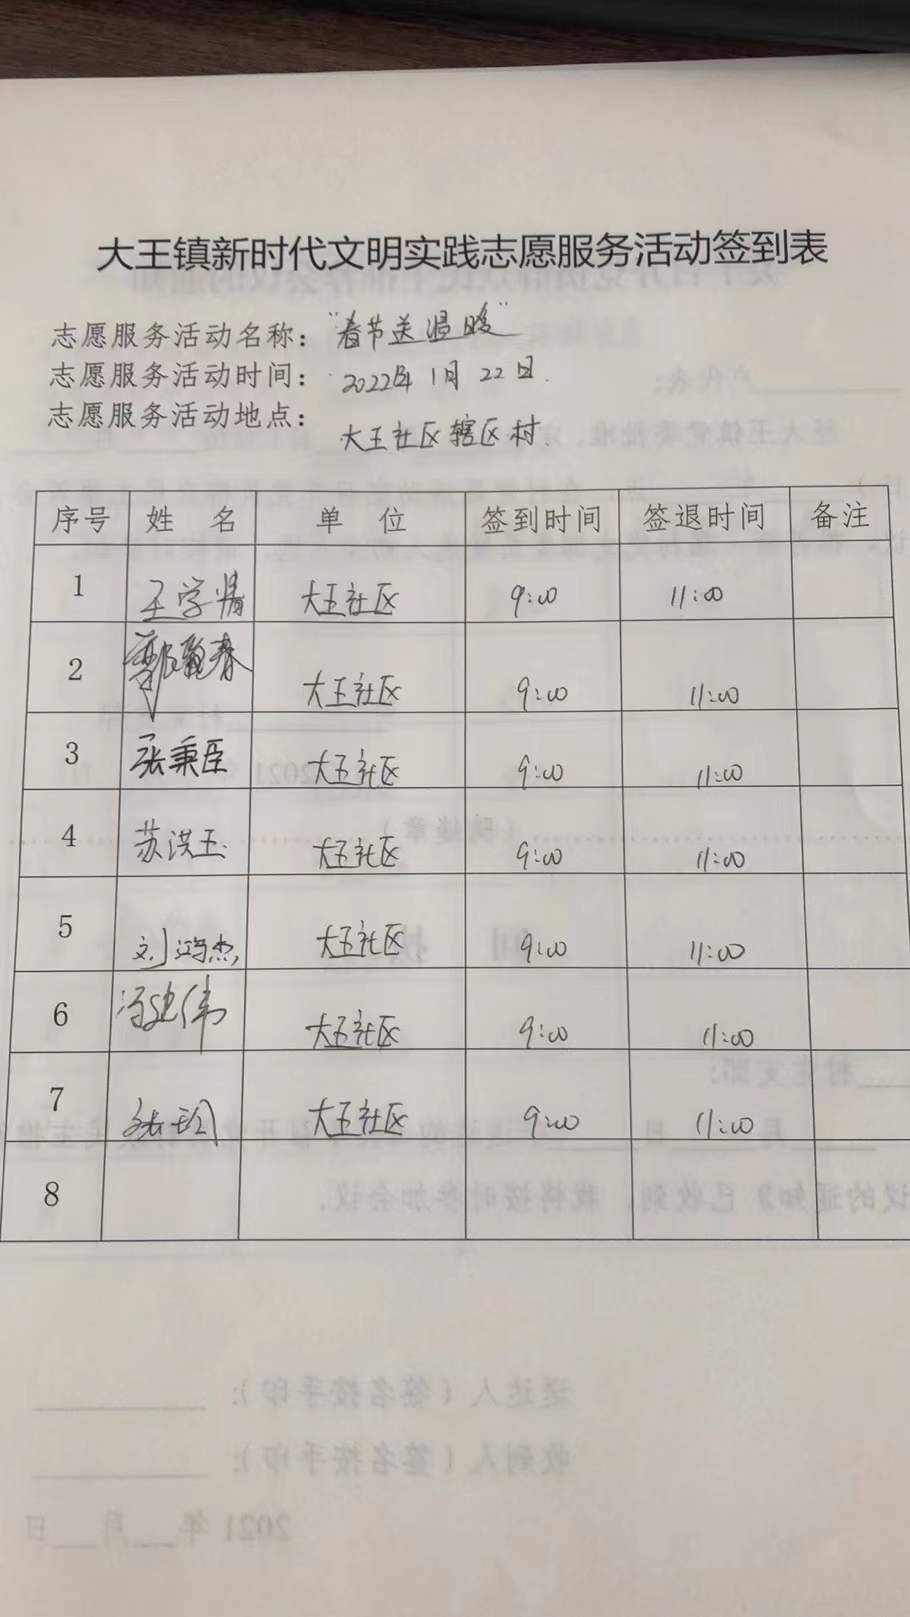 大王镇新时代文明实践志愿服务活动签到表
志愿服务活动名称："春节送温暖"
志愿服务活动时间：2022年1月22日.
志愿服务活动地点：大王社区辖区村.
序号 姓 名 单 位 签到时间 签退时间 备注
1 王学 大王社区 9:00 11:00
2 春 大王社区 9:00 11:00
3 张秉臣 大王社区 9:00 11:00
4 苏洪玉 大王社区 9:00 11:00
5 刘鸿杰 大王社区 9:00 11:00
6 冯建伟 大王社区 9:00 11:00
7 张 大王社区 9:00 11:00
8